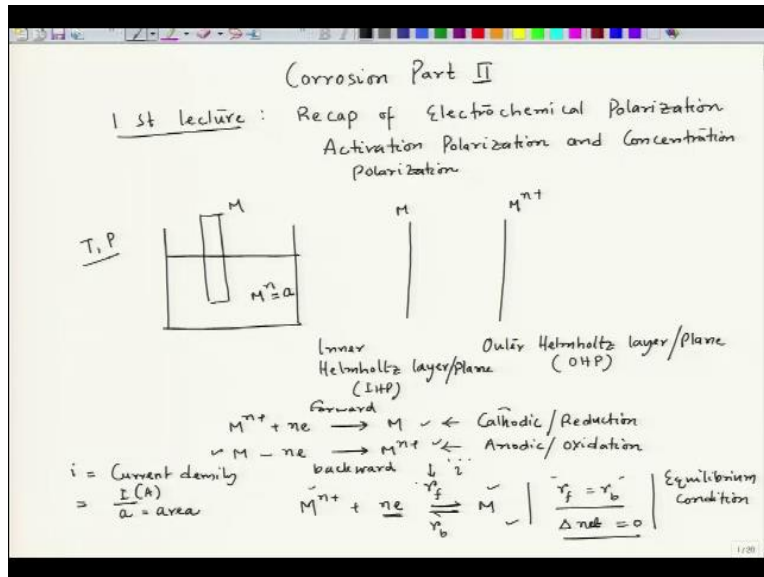 Corrosion Part II
1 st lecture : Recap of Electrochemical Polarization
Activation Polarization and Concentration
Polarization
M
M
M^n+
T, P
M^n = a
Inner
Helmholtz layer/plane
(IHP)
Outer Helmholtz layer/Plane
(OHP)
forward
M^n+ + ne → M ✓ ← Cathodic/Reduction
✓ M - ne → M^n+ ✓ ← Anodic/Oxidation
backward ↓ i
i = Current density
= I(A) / a = area
M^n+ + ne ⇌ M ✓
r_f
r_b
r_f = r_b
Δ net = 0
Equilibrium
condition
1/20